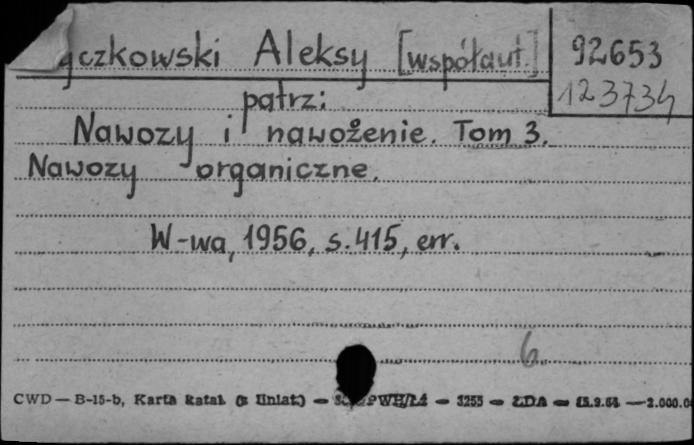 Aleksy [współaut.] 92653
123734
patrz:
Nawozy i nawożenie. Tom 3.
Nawozy organiczne.
W-wa, 1956, s. 415, err.
6
CWD — B-15-b, Karta katal. (z liniat.) — — 3255 — ŁDA — — 2.000.0